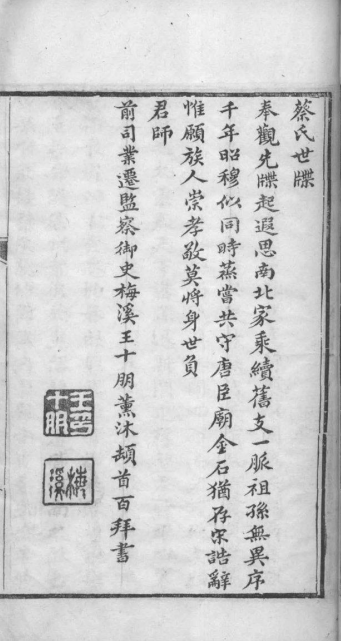 蔡氏世牒
奉觀先牒起遐思南北家乘續舊支一脈祖孫無異序
千年昭穆似同時蒸嘗共守唐臣廟金石猶存宋誥辭
惟願族人崇孝敬莫將身世負
君師
前司業遷監察御史梅溪王十朋薰沐頓首百拜書
王十朋印
梅溪